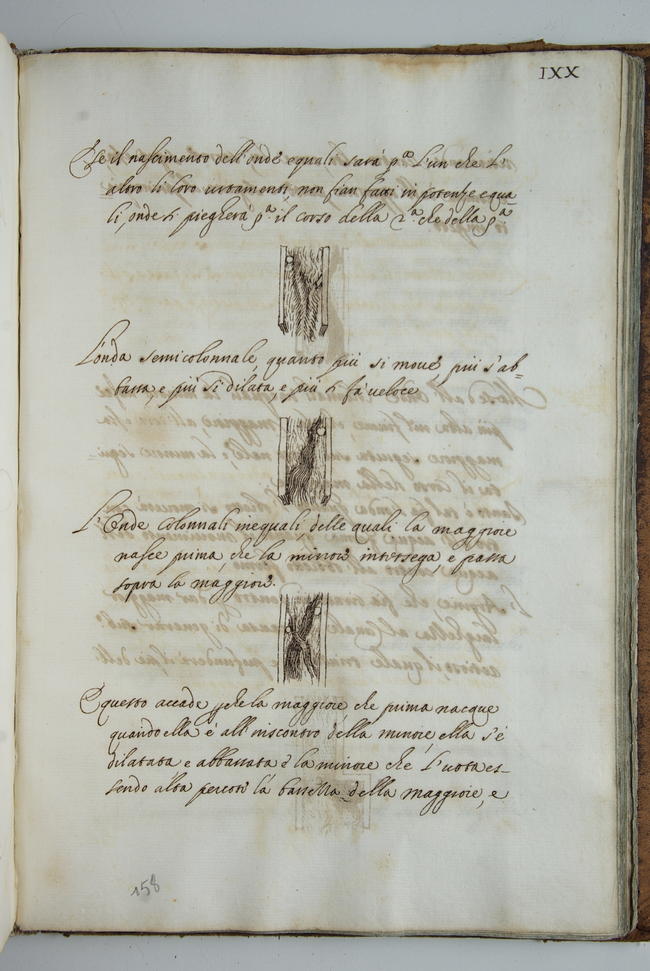 IXX
Se il nascimento dell'onde equali sarà p.ª l'un che l'
altro li loro urtamenti non fian fatti in potenze equa
li, onde si piegherà p.ª il corso della 2.ª che della p.ª
L'onda semicolonnale, quanto più si move più s'ab=
bassa, e più si dilata, e più si fà veloce
L'Onde Colonnali inequali, delle quali la maggiore
nasce prima, che la minore intersega, e passa
sopra la maggiore.
Questo accade, perche la maggiore che prima nacque
quando ella è all'inscontro della minore ella s'é
dilatata e abbassata è la minore che l'urta es=
sendo alta percote la bassezza della maggiore, e
158